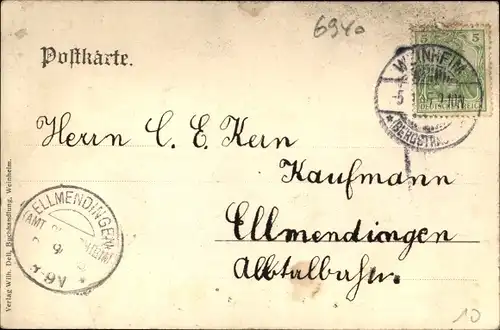 6940
Postkarte.
5 5
DEUTSCHES REICH
WEINHEIM
*(BERGSTR.)*
Herrn C. E. Kern
Kaufmann
Ellmendingen
Albtalbahn.
ELLMENDINGEN
AMT
Verlag Wilh. Dell, Buchhandlung, Weinheim.
10